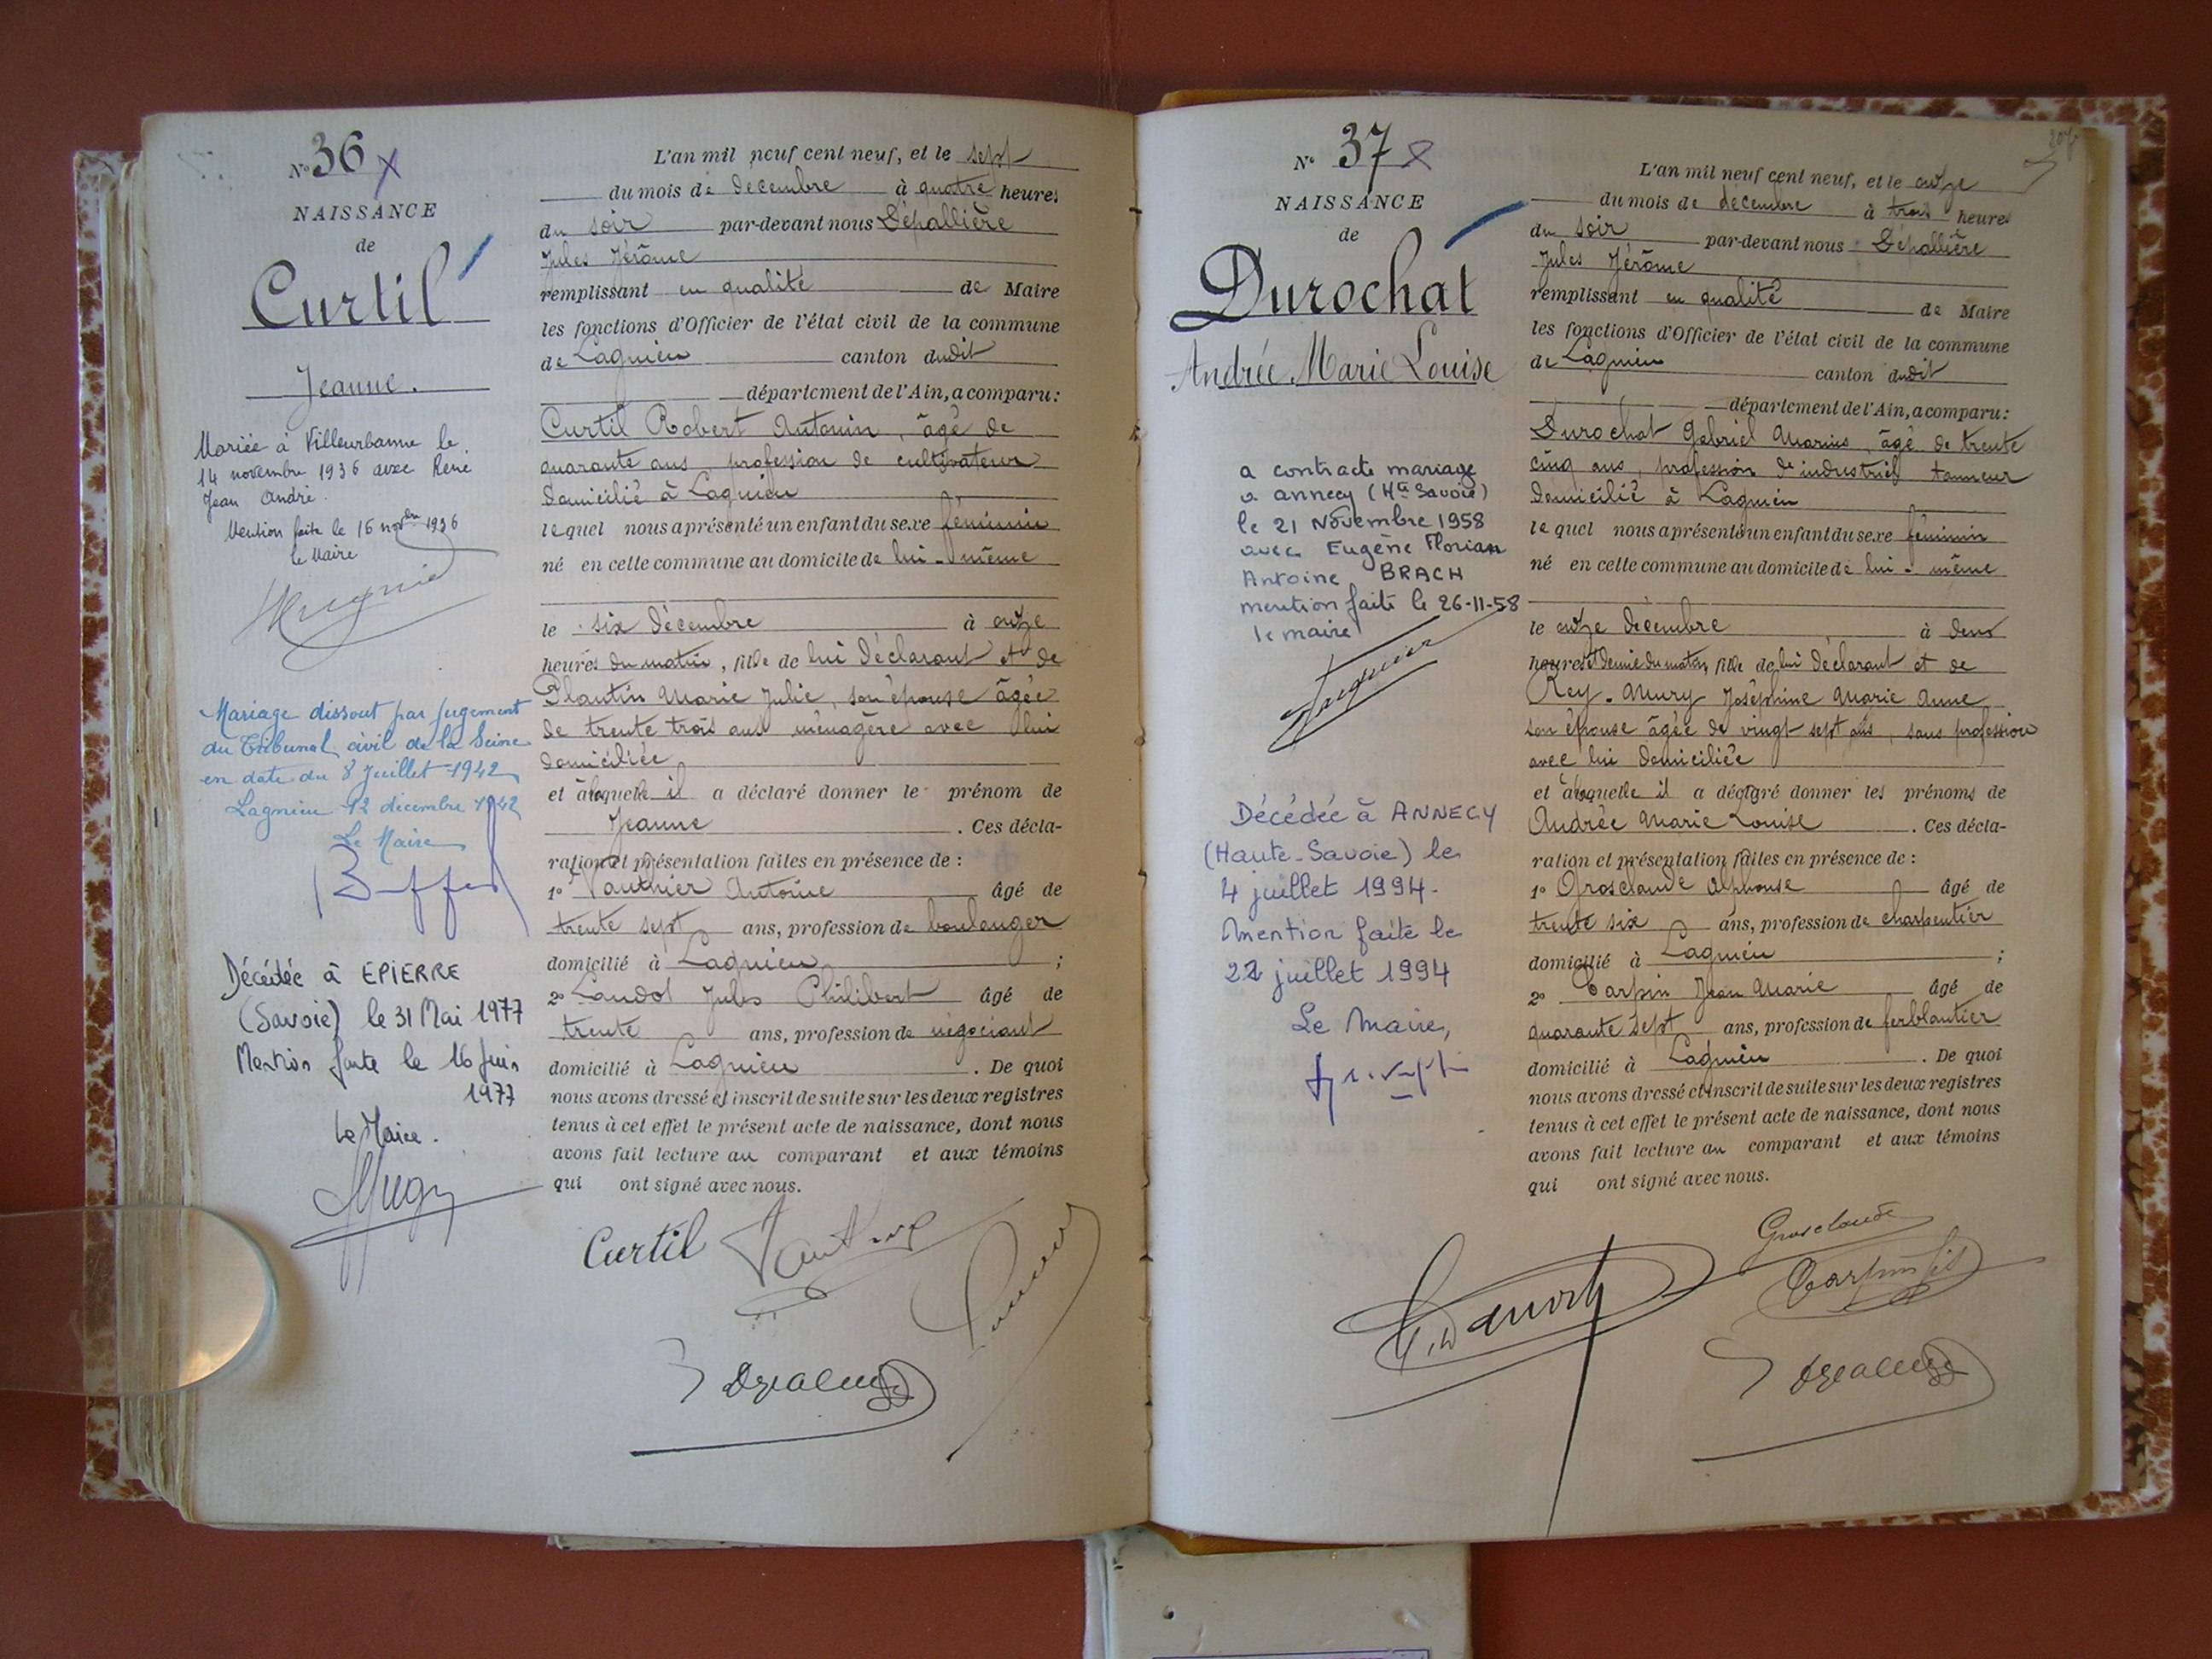 N° 36
NAISSANCE
de
Curtil
Jeanne.
Mariée à Villeurbanne le
14 novembre 1936 avec René
Jean André.
Mention faite le 16 novbre 1936
le Maire
Mariage dissout par jugement
du Tribunal civil de la Seine
en date du 8 Juillet 1942
Lagnieu 12 décembre 1942
Le Maire
Décédée à EPIERRE
(Savoie) le 31 Mai 1977
Mention faite le 16 juin
1977
Le Maire.
L'an mil neuf cent neuf, et le sept
du mois de décembre à quatre heures
du soir par-devant nous Dépallière
Jules Jérôme
remplissant en qualité de Maire
les fonctions d'Officier de l'état civil de la commune
de Lagnieu canton dudit
département de l'Ain, a comparu:
Curtil Robert Antonin, âgé de
quarante ans profession de cultivateur
domicilié à Lagnieu
lequel nous a présenté un enfant du sexe féminin
né en cette commune au domicile de lui-même
le six décembre à onze
heures du matin, fille de lui déclarant et de
Plantin Marie Julie, son épouse âgée
de trente trois ans ménagère avec lui
domiciliée
et à laquelle il a déclaré donner le prénom de
Jeanne. Ces décla-
ration et présentation faites en présence de :
1° Vauthier Antoine âgé de
trente sept ans, profession de boulanger
domicilié à Lagnieu ;
2° Landot Jules Philibert âgé de
trente ans, profession de négociant
domicilié à Lagnieu. De quoi
nous avons dressé et inscrit de suite sur les deux registres
tenus à cet effet le présent acte de naissance, dont nous
avons fait lecture au comparant et aux témoins
qui ont signé avec nous.
Curtil
N° 37
NAISSANCE
de
Durochat
Andrée Marie Louise
a contracté mariage
a annecy (Hte Savoie)
le 21 Novembre 1958
avec Eugène Florian
Antoine BRACH
mention faite le 26-11-58
le maire
Décédée à ANNECY
(Haute-Savoie) le
4 juillet 1994.
Mention faite le
22 juillet 1994
Le Maire,
L'an mil neuf cent neuf, et le onze
du mois de décembre à trois heures
du soir par-devant nous Dépallière
Jules Jérôme
remplissant en qualité de Maire
les fonctions d'Officier de l'état civil de la commune
de Lagnieu canton dudit
département de l'Ain, a comparu:
Durochat Gabriel Marius, âgé de trente
cinq ans, profession de industriel tanneur
domicilié à Lagnieu
lequel nous a présenté un enfant du sexe féminin
né en cette commune au domicile de lui-même
le onze décembre à deux
heures et demie du matin, fille de lui déclarant et de
Rey-Mury Joséphine Marie Anne
son épouse âgée de vingt sept ans, sans profession
avec lui domiciliée
et à laquelle il a déclaré donner les prénoms de
Andrée Marie Louise. Ces décla-
ration et présentation faites en présence de :
1° Grosclaude Alphonse âgé de
trente six ans, profession de charpentier
domicilié à Lagnieu ;
2° Tarpin Jean Marie âgé de
quarante sept ans, profession de ferblantier
domicilié à Lagnieu. De quoi
nous avons dressé et inscrit de suite sur les deux registres
tenus à cet effet le présent acte de naissance, dont nous
avons fait lecture au comparant et aux témoins
qui ont signé avec nous.
Grosclaude
Tarpin fils